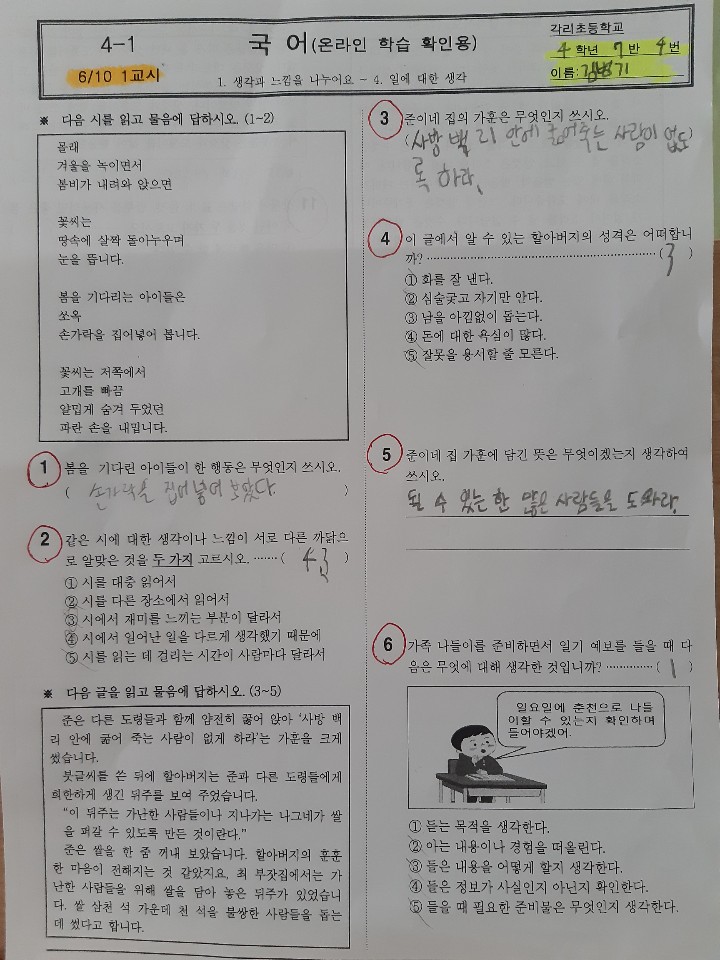 4-1
6/10 1교시
국 어(온라인 학습 확인용)
1. 생각과 느낌을 나누어요 ~ 4. 일에 대한 생각
각리초등학교
4 학년 7 반 4 번
이름: 김범기
※ 다음 시를 읽고 물음에 답하시오. (1~2)
몰래
겨울을 녹이면서
봄비가 내려와 앉으면
꽃씨는
땅속에 살짝 돌아누우며
눈을 뜹니다.
봄을 기다리는 아이들은
쏘옥
손가락을 집어넣어 봅니다.
꽃씨는 저쪽에서
고개를 빠끔
얄밉게 숨겨 두었던
파란 손을 내밉니다.
1 봄을 기다린 아이들이 한 행동은 무엇인지 쓰시오.
( 손가락을 집어넣어 보았다. )
2 같은 시에 대한 생각이나 느낌이 서로 다른 까닭으
로 알맞은 것을 두 가지 고르시오. ·······( 4,3 )
① 시를 대충 읽어서
② 시를 다른 장소에서 읽어서
③ 시에서 재미를 느끼는 부분이 달라서
④ 시에서 일어난 일을 다르게 생각했기 때문에
⑤ 시를 읽는 데 걸리는 시간이 사람마다 달라서
※ 다음 글을 읽고 물음에 답하시오. (3~5)
준은 다른 도령들과 함께 얌전히 꿇어 앉아 ‘사방 백
리 안에 굶어 죽는 사람이 없게 하라’는 가훈을 크게
썼습니다.
붓글씨를 쓴 뒤에 할아버지는 준과 다른 도령들에게
희한하게 생긴 뒤주를 보여 주었습니다.
“이 뒤주는 가난한 사람들이나 지나가는 나그네가 쌀
을 퍼갈 수 있도록 만든 것이란다.”
준은 쌀을 한 줌 꺼내 보았습니다. 할아버지의 훈훈
한 마음이 전해지는 것 같았지요, 최 부잣집에서는 가
난한 사람들을 위해 쌀을 담아 놓은 뒤주가 있었습니
다. 쌀 삼천 석 가운데 천 석을 불쌍한 사람들을 돕는
데 썼다고 합니다.
3 준이네 집의 가훈은 무엇인지 쓰시오.
(사방 백 리 안에 굶어죽는 사람이 없도)
록 하라.
4 이 글에서 알 수 있는 할아버지의 성격은 어떠합니
까? ·······( 3 )
① 화를 잘 낸다.
② 심술궂고 자기만 안다.
③ 남을 아낌없이 돕는다.
④ 돈에 대한 욕심이 많다.
⑤ 잘못을 용서할 줄 모른다.
5 준이네 집 가훈에 담긴 뜻은 무엇이겠는지 생각하여
쓰시오.
될 수 있는 한 많은 사람들을 도와라.
6 가족 나들이를 준비하면서 일기 예보를 들을 때 다
음은 무엇에 대해 생각한 것입니까? ·······( 1 )
일요일에 춘천으로 나들
이할 수 있는지 확인하며
들어야겠어.
① 듣는 목적을 생각한다.
② 아는 내용이나 경험을 떠올린다.
③ 들은 내용을 어떻게 할지 생각한다.
④ 들은 정보가 사실인지 아닌지 확인한다.
⑤ 들을 때 필요한 준비물은 무엇인지 생각한다.